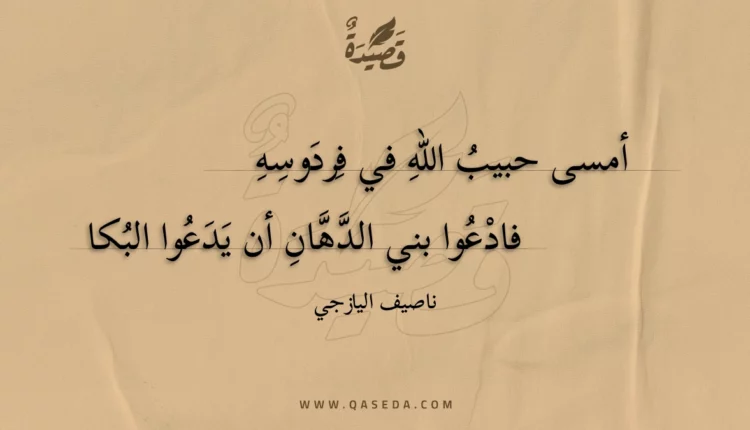 قَصِيدَةٌ
أمسى حبيبُ اللهِ في فِردَوسِهِ
فادْعُوا بني الدَّهَّانِ أن يَدَعُوا البُكا
ناصيف اليازجي
WWW.QASEDA.COM